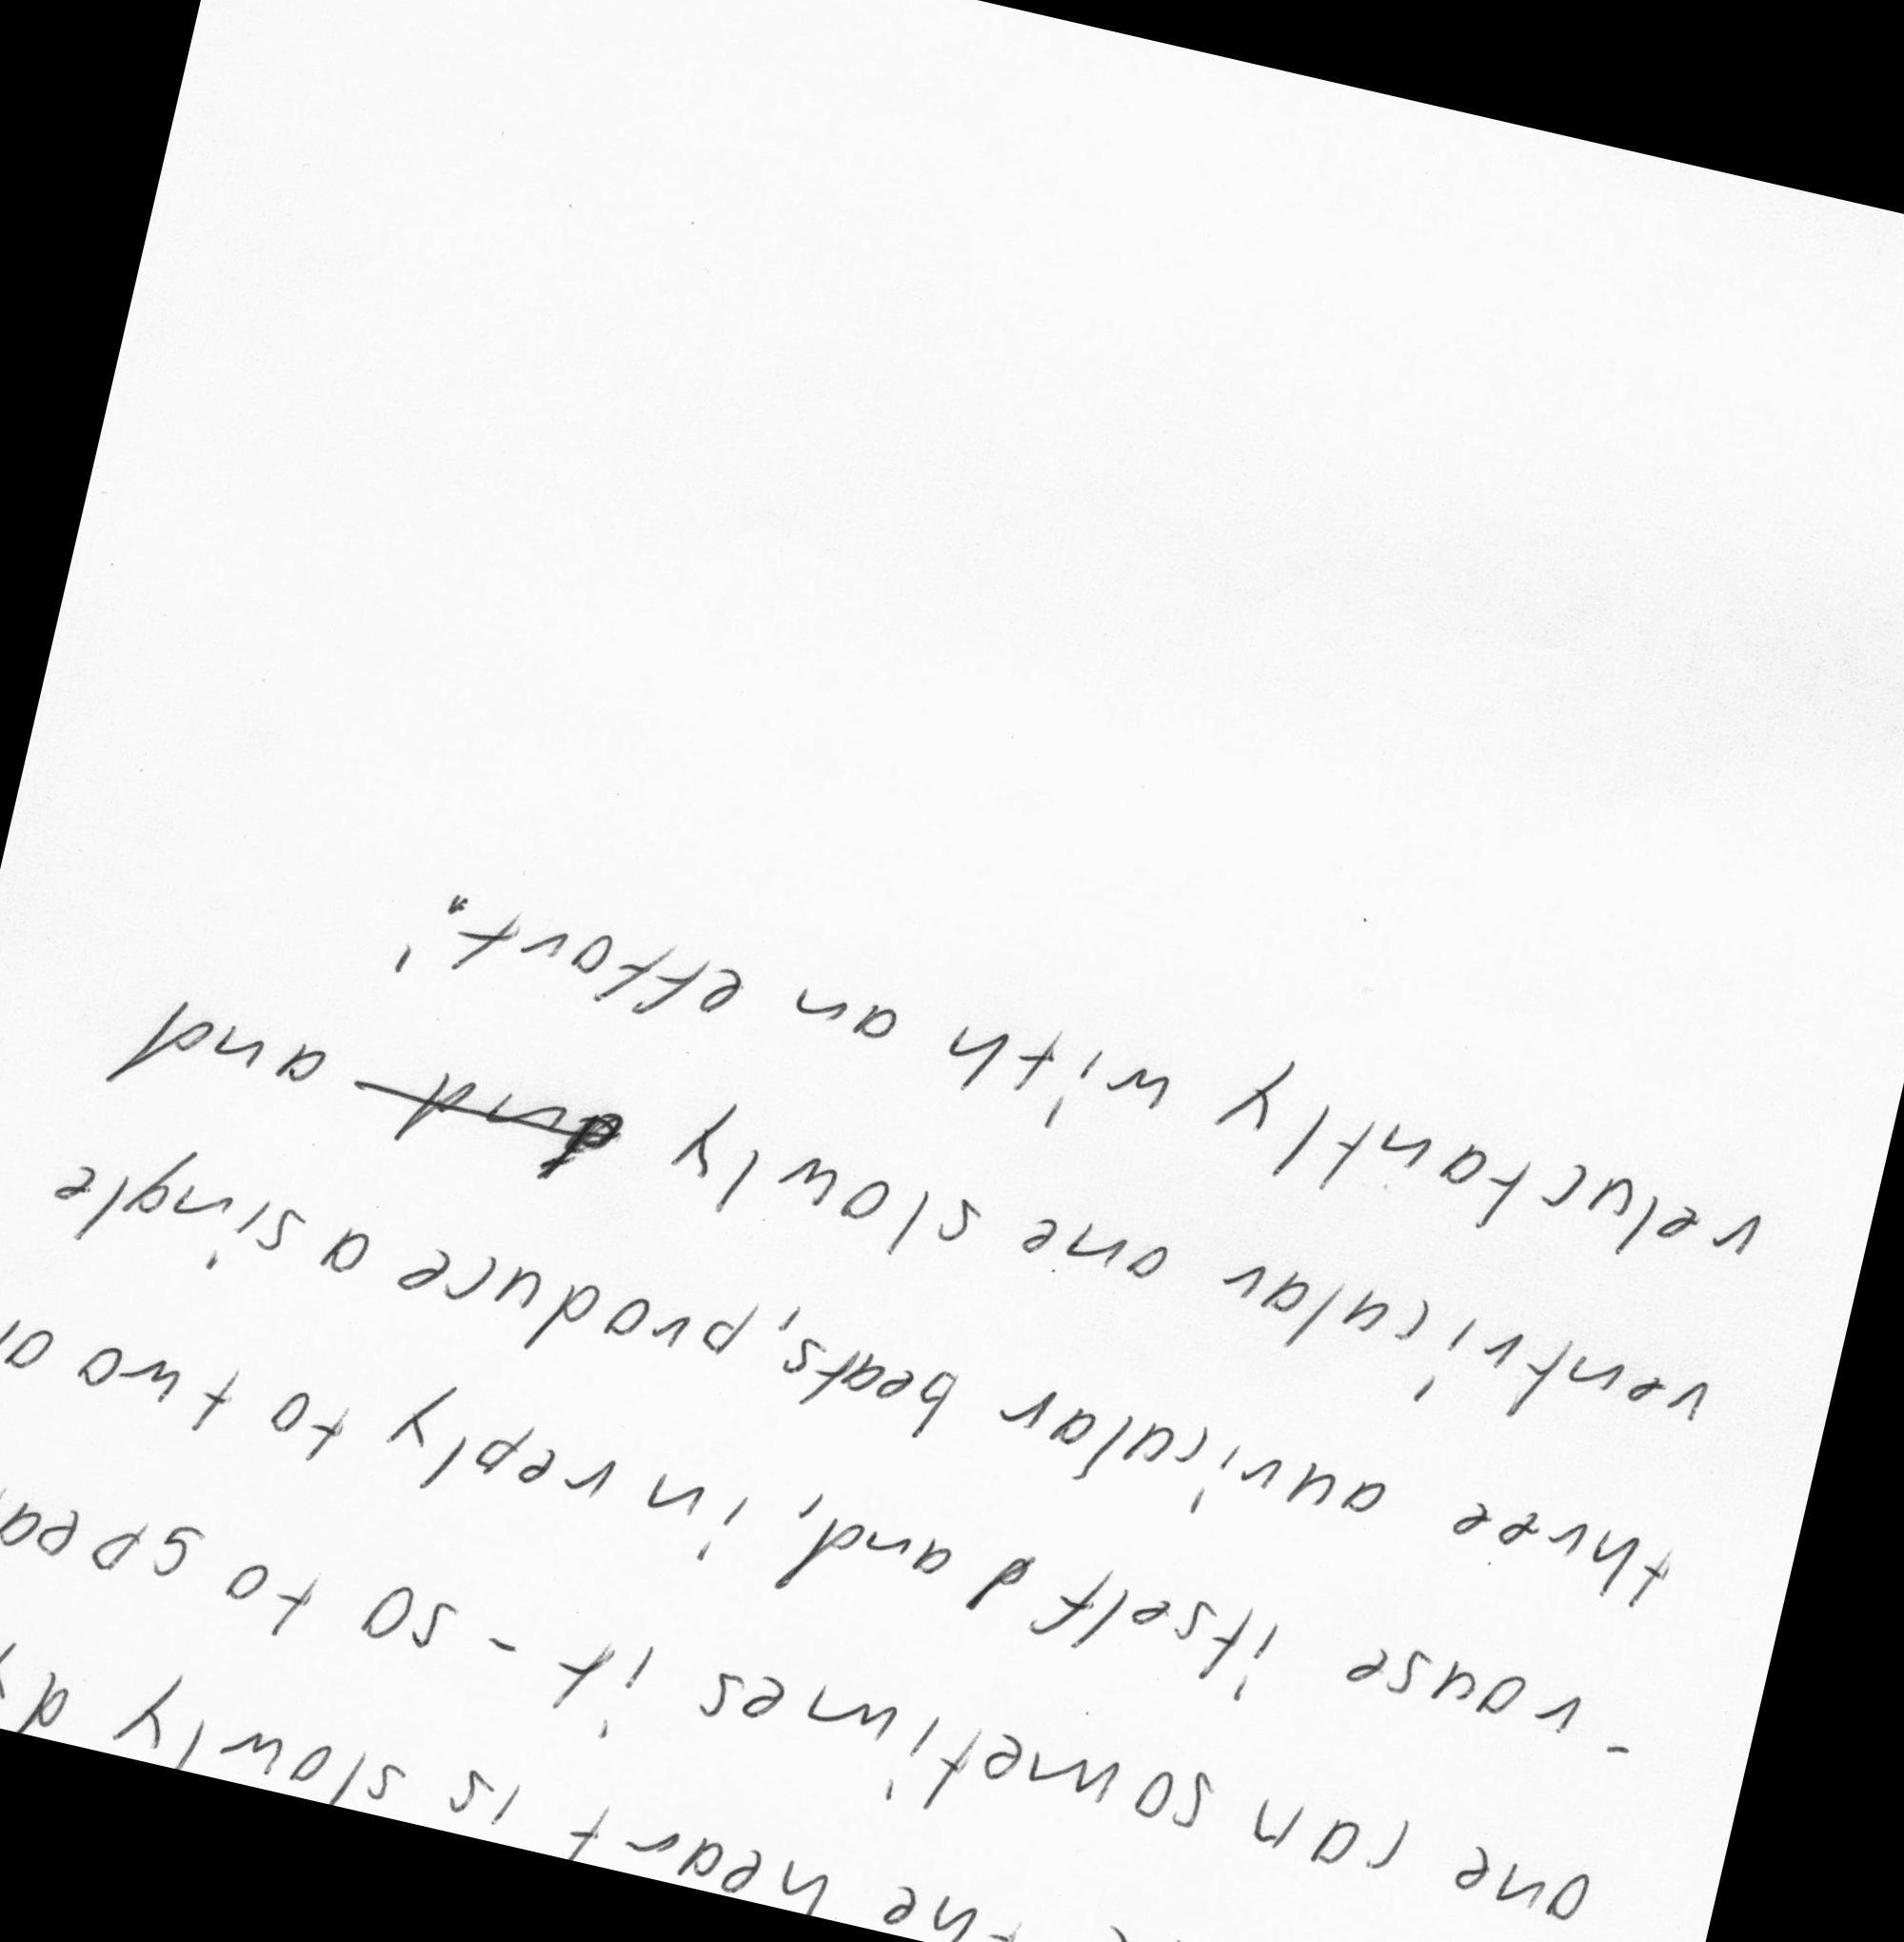 the heart is slowly
one can sometimes it - so to
- rouse itself and, in reply to two
three auricular beats, produce a single
ventricular one slowly and and
reluctantly with an effort."